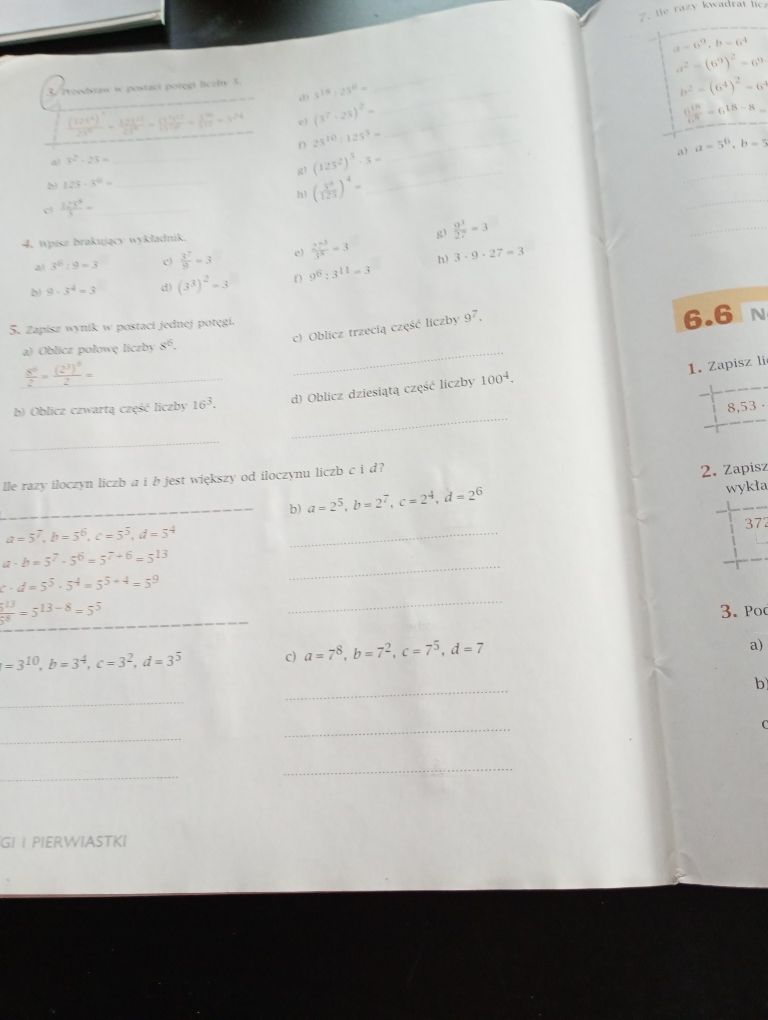 3. Przedstaw w postaci potęgi liczby 5.
a) 5² · 25 =
b) 125 · 5⁶ =
c) 125⁸/5 =
d) 5¹⁸ : 25⁶ =
e) (5⁷ · 25)² =
f) 25¹⁰ : 125⁵ =
g) (125²)³ · 5 =
4. Wpisz brakujący wykładnik.
a) 3⁶ : 9 = 3
b) 9 · 3⁴ = 3
c) 3⁷/9 = 3
d) (3³)² = 3
e) 27³/3⁸ = 3
f) 9⁶ : 3¹¹ = 3
g) 9³/27 = 3
h) 3 · 9 · 27 = 3
5. Zapisz wynik w postaci jednej potęgi.
a) Oblicz połowę liczby 8⁶.
8⁶/2 = (2³)⁶/2 =
b) Oblicz czwartą część liczby 16³.
c) Oblicz trzecią część liczby 9⁷.
d) Oblicz dziesiątą część liczby 100⁴.
Ile razy iloczyn liczb a i b jest większy od iloczynu liczb c i d?
a = 5⁷, b = 5⁶, c = 5⁵, d = 5⁴
a · b = 5⁷ · 5⁶ = 5⁷⁺⁶ = 5¹³
c · d = 5⁵ · 5⁴ = 5⁵⁺⁴ = 5⁹
5¹³/5⁸ = 5¹³⁻⁸ = 5⁵
= 3¹⁰, b = 3⁴, c = 3², d = 3⁵
b) a = 2⁵, b = 2⁷, c = 2⁴, d = 2⁶
c) a = 7⁸, b = 7², c = 7⁵, d = 7
GI I PIERWIASTKI
7. Ile razy kwadrat licz
a = 6⁹, b = 6⁴
a² = (6⁹)² = 6⁹·
b² = (6⁴)² = 6⁴
6¹⁸/6⁸ = 6¹⁸⁻⁸ =
a) a = 5⁶, b = 5
6.6 N
1. Zapisz li
8,53 ·
2. Zapisz
wykła
372
3. Pod
a)
b)
c